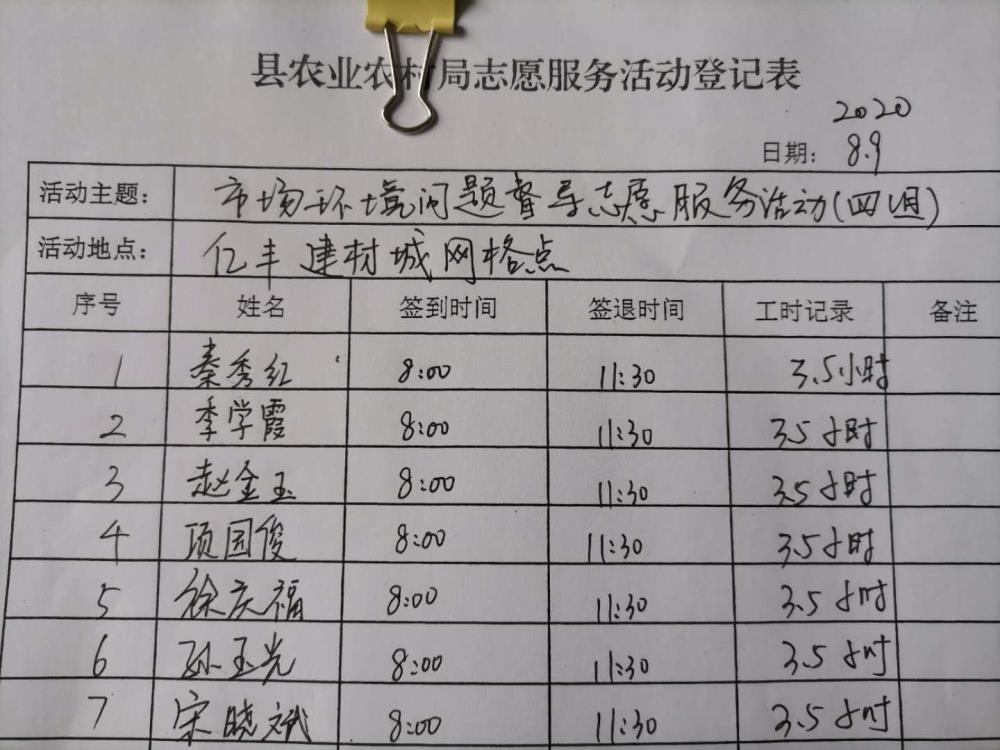 县农业农村局志愿服务活动登记表
2020
日期： 8.9
活动主题： 市场环境问题督导志愿服务活动(四週)
活动地点： 亿丰建材城网格点
序号 姓名 签到时间 签退时间 工时记录 备注
1 秦秀红 8:00 11:30 3.5小时
2 季学霞 8:00 11:30 3.5小时
3 赵金玉 8:00 11:30 3.5小时
4 项国俊 8:00 11:30 3.5小时
5 徐庆福 8:00 11:30 3.5小时
6 孙玉光 8:00 11:30 3.5小时
7 宋晓斌 8:00 11:30 3.5小时